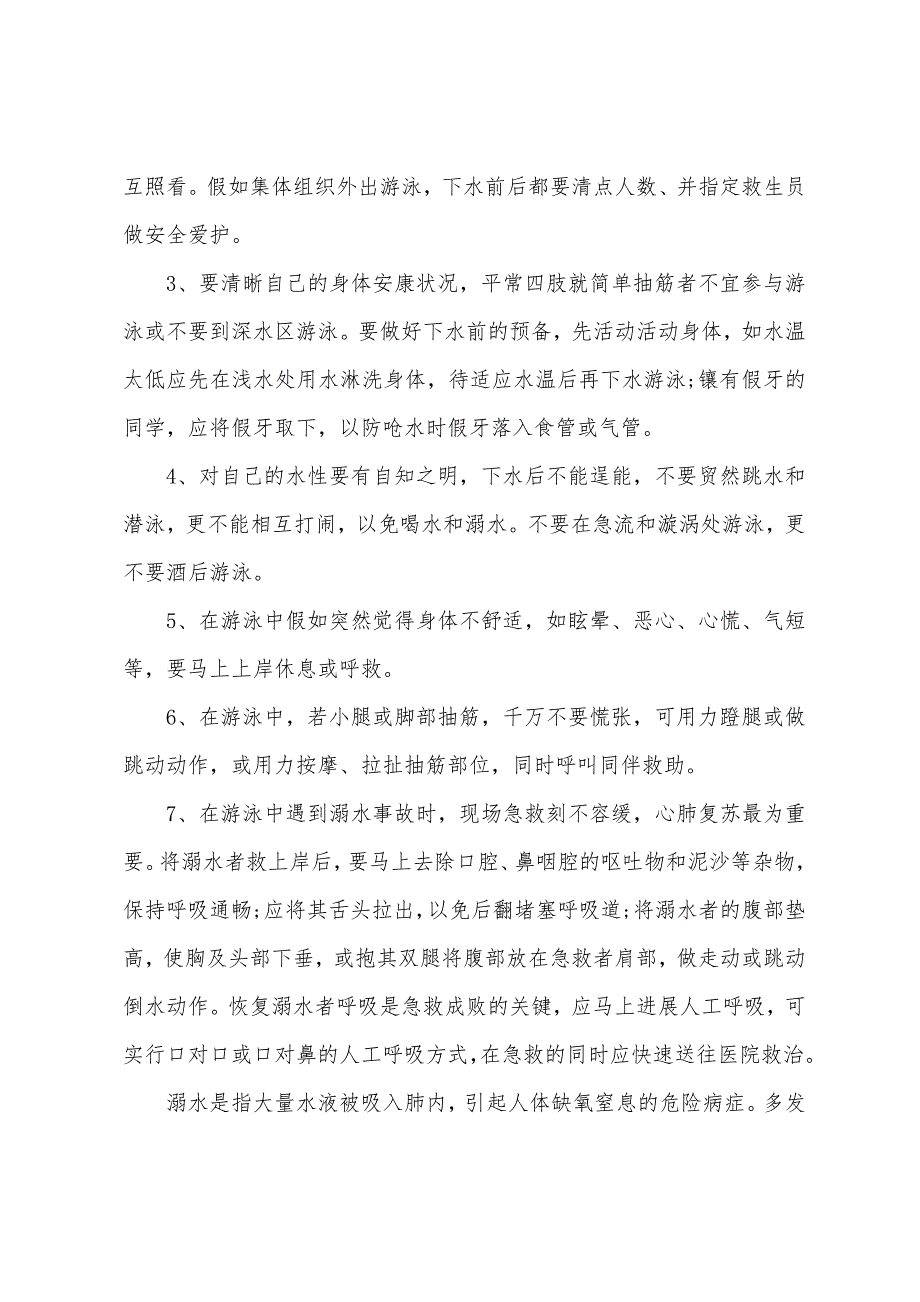 互照看。假如集体组织外出游泳，下水前后都要清点人数、并指定救生员
做安全爱护。
3、要清晰自己的身体安康状况，平常四肢就简单抽筋者不宜参与游
泳或不要到深水区游泳。要做好下水前的预备，先活动活动身体，如水温
太低应先在浅水处用水淋洗身体，待适应水温后再下水游泳;镶有假牙的
同学，应将假牙取下，以防呛水时假牙落入食管或气管。
4、对自己的水性要有自知之明，下水后不能逞能，不要贸然跳水和
潜泳，更不能相互打闹，以免喝水和溺水。不要在急流和漩涡处游泳，更
不要酒后游泳。
5、在游泳中假如突然觉得身体不舒适，如眩晕、恶心、心慌、气短
等，要马上上岸休息或呼救。
6、在游泳中，若小腿或脚部抽筋，千万不要慌张，可用力蹬腿或做
跳动动作，或用力按摩、拉扯抽筋部位，同时呼叫同伴救助。
7、在游泳中遇到溺水事故时，现场急救刻不容缓，心肺复苏最为重
要。将溺水者救上岸后，要马上去除口腔、鼻咽腔的呕吐物和泥沙等杂物，
保持呼吸通畅;应将其舌头拉出，以免后翻堵塞呼吸道;将溺水者的腹部垫
高，使胸及头部下垂，或抱其双腿将腹部放在急救者肩部，做走动或跳动
倒水动作。恢复溺水者呼吸是急救成败的关键，应马上进展人工呼吸，可
实行口对口或口对鼻的人工呼吸方式，在急救的同时应快速送往医院救治。
溺水是指大量水液被吸入肺内，引起人体缺氧窒息的危险病症。多发